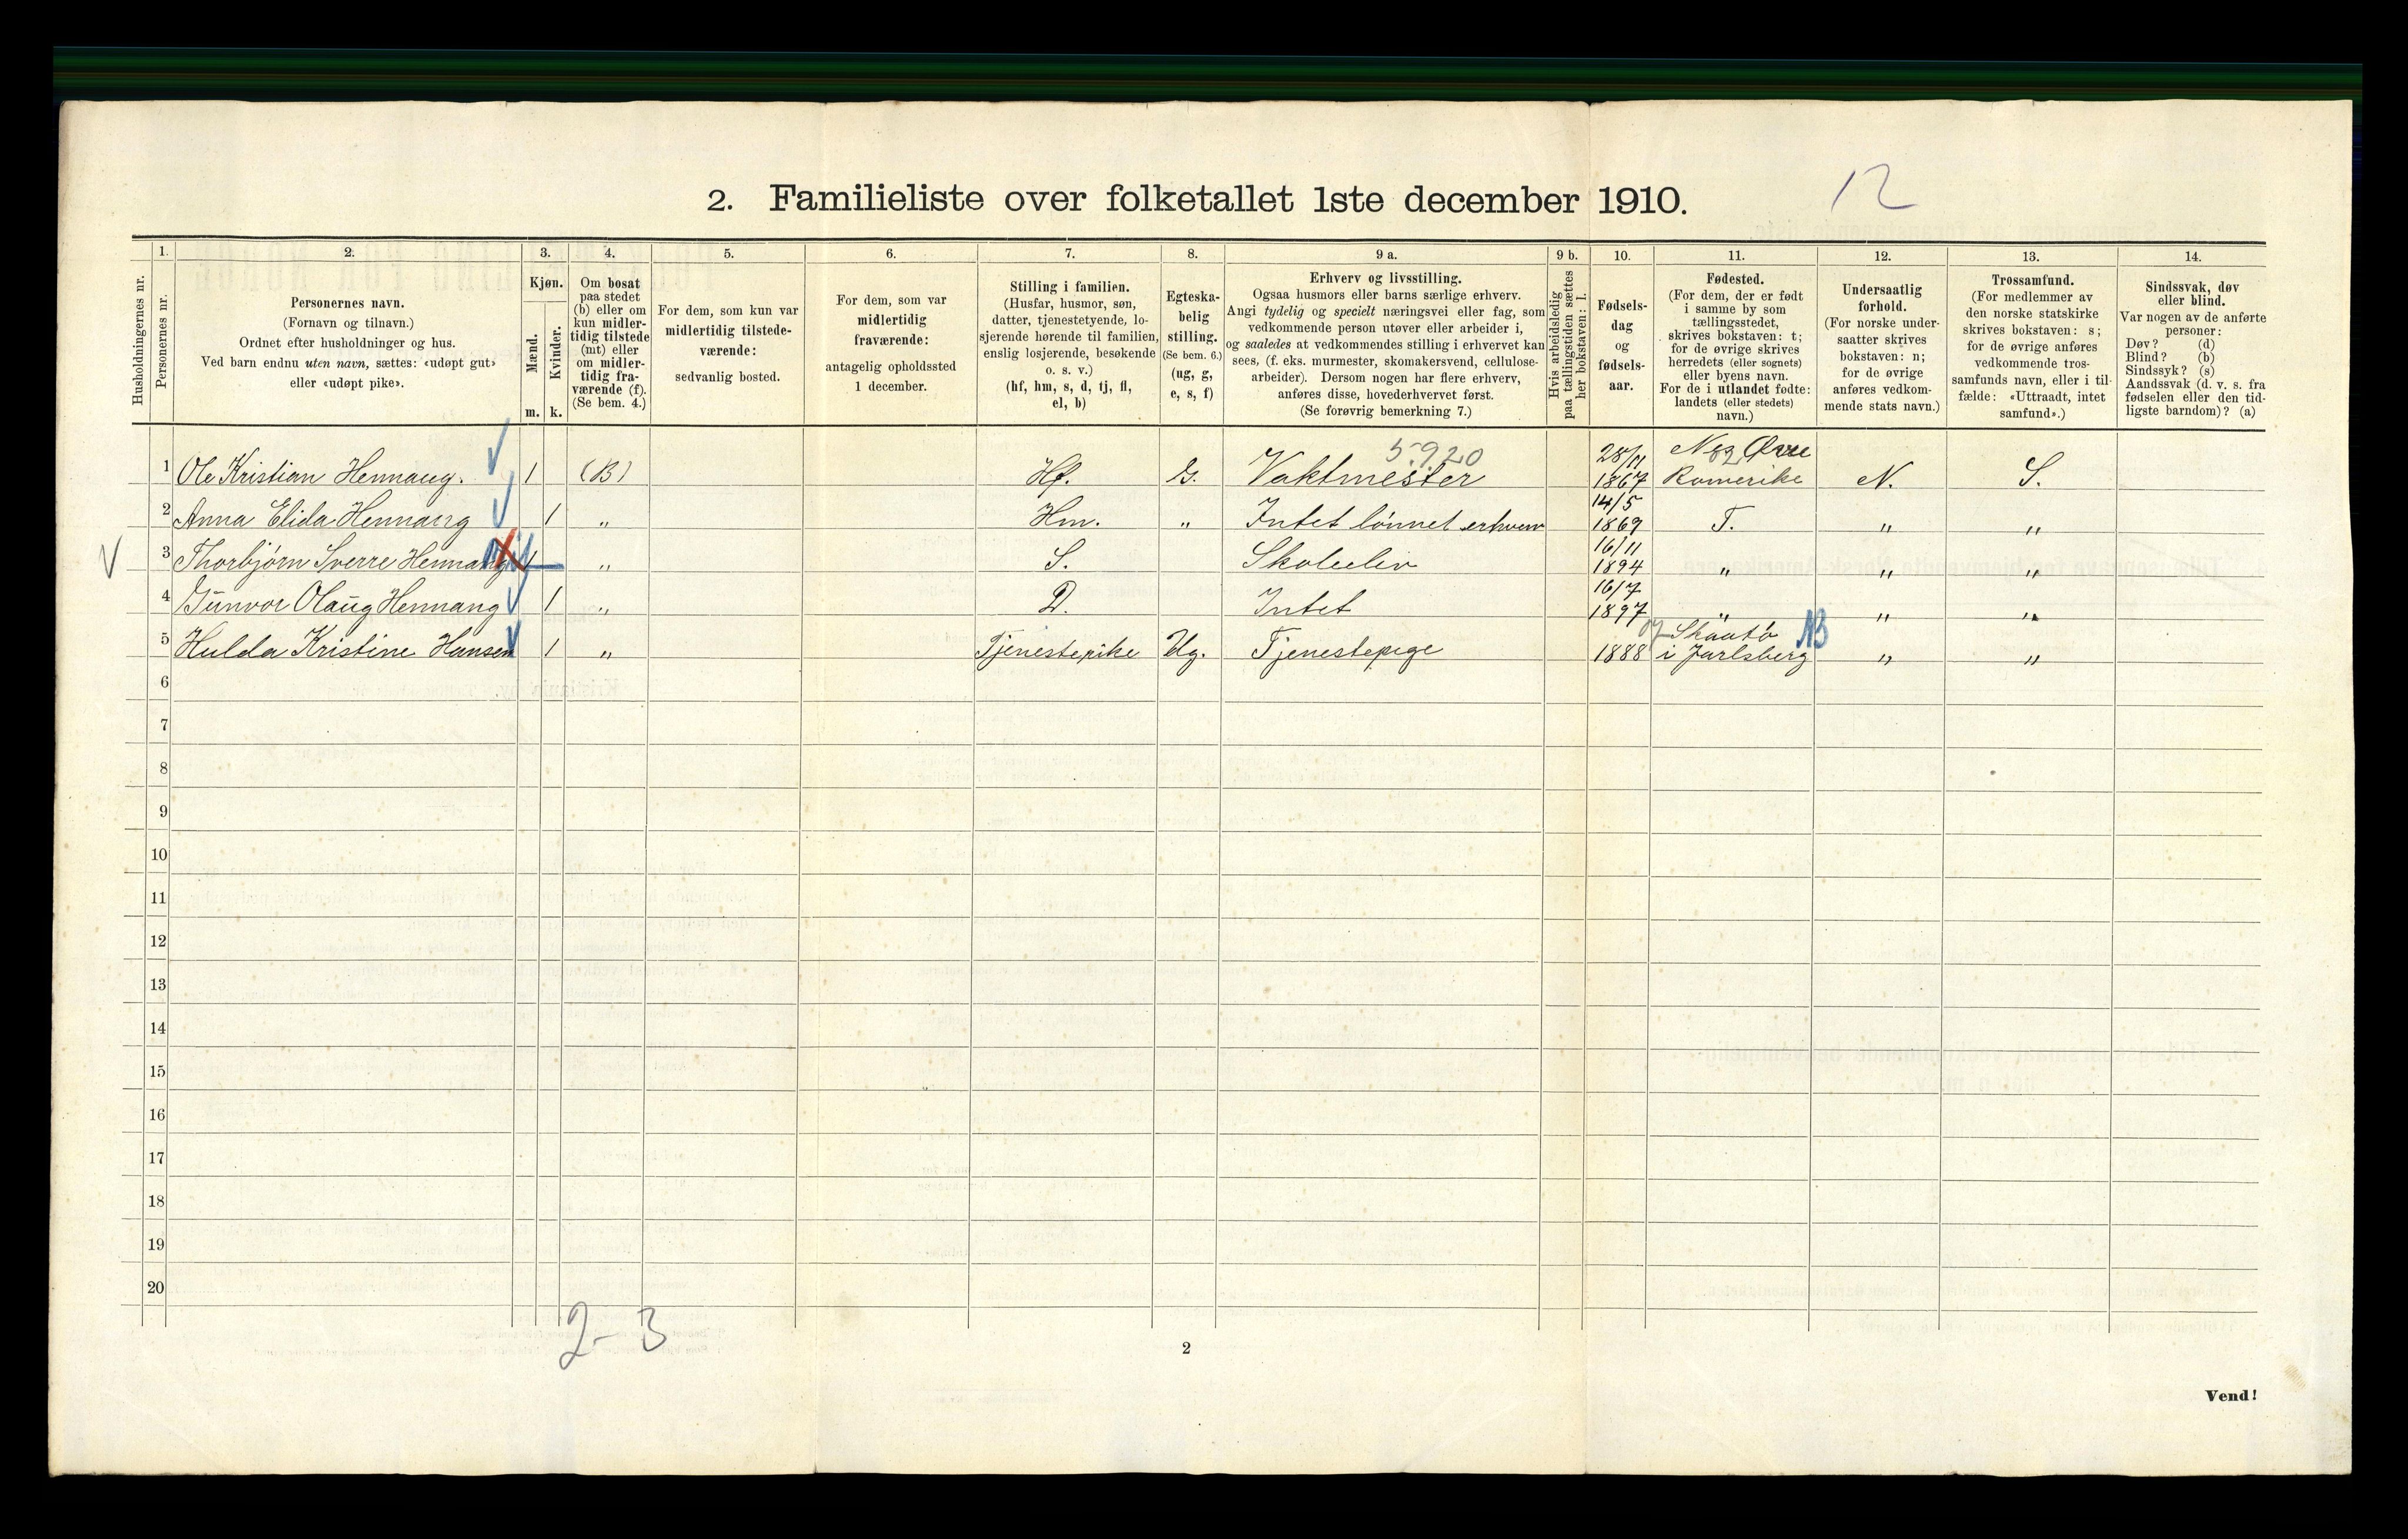 12
2. Familieliste over folketallet 1ste december 1910.
Husholdningernes nr.
1.
Personernes nr.
2.
Personernes navn.
(Fornavn og tilnavn.)
Ordnet efter husholdninger og hus.
Ved barn endnu uten navn, sættes: «udøpt gut»
eller «udøpt pike».
3.
Kjøn.
Mænd.
Kvinder.
m. k.
4.
Om bosat
paa stedet
(b) eller om
kun midler-
tidig tilstede
(mt) eller
om midler-
tidig fra-
værende (f).
(Se bem. 4.)
5.
For dem, som kun var
midlertidig tilstede-
værende:
sedvanlig bosted.
6.
For dem, som var
midlertidig
fraværende:
antagelig opholdssted
1 december.
7.
Stilling i familien.
(Husfar, husmor, søn,
datter, tjenestetyende, lo-
sjerende hørende til familien,
enslig losjerende, besøkende
o. s. v.)
(hf, hm, s, d, tj, fl,
el, b)
8.
Egteska-
belig
stilling.
(Se bem. 6.)
(ug, g,
e, s, f)
9 a.
Erhverv og livsstilling.
Ogsaa husmors eller barns særlige erhverv.
Angi tydelig og specielt næringsvei eller fag, som
vedkommende person utøver eller arbeider i,
og saaledes at vedkommendes stilling i erhvervet kan
sees, (f. eks. murmester, skomakersvend, cellulose-
arbeider). Dersom nogen har flere erhverv,
anføres disse, hovederhvervet først.
(Se forøvrig bemerkning 7.)
9 b.
Hvis arbeidsledig
paa tællingstiden sættes
her bokstaven: l.
10.
Fødsels-
dag
og
fødsels-
aar.
11.
Fødested.
(For dem, der er født
i samme by som
tællingsstedet,
skrives bokstaven: t;
for de øvrige skrives
herredets (eller sognets)
eller byens navn.
For de i utlandet fødte:
landets (eller stedets)
navn.)
12.
Undersaatlig
forhold.
(For norske under-
saatter skrives
bokstaven: n;
for de øvrige
anføres vedkom-
mende stats navn.)
13.
Trossamfund.
(For medlemmer av
den norske statskirke
skrives bokstaven: s;
for de øvrige anføres
vedkommende tros-
samfunds navn, eller i til-
fælde: «Uttraadt, intet
samfund».)
14.
Sindssvak, døv
eller blind.
Var nogen av de anførte
personer:
Døv? (d)
Blind? (b)
Sindssyk? (s)
Aandssvak (d. v. s. fra
fødselen eller den tid-
ligste barndom)? (a)
5.920 28/11 Nes Øvre
1 Ole Kristian Hennaug. 1 (B) Hf. G. Vaktmester 1867 Romerike N. S.
14/5
2 Anna Elida Hennaug 1 " Hm. " Intet lønnet erhverv 1869 T. " "
16/11
3 Thorbjørn Sverre Hennaug 1 " S. Skoleelev 1894 " " "
16/7
4 Gunvor Olaug Hennaug 1 " D. Intet 1897 " " "
Skaatø
5 Hulda Kristine Hansen 1 " Tjenestepike Ug. Tjenestepige 1888 i Jarlsberg " "
6
7
8
9
10
11
12
13
14
15
16
17
18
19
20
2-3
2
Vend!